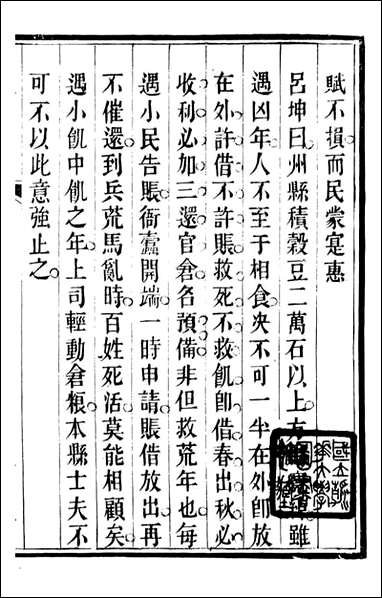 賦不損而民蒙寔惠
呂坤曰州縣積穀豆二萬石以上方雖
遇凶年人不至于相食決不可一半在外即放
在外許借不許賑救死不救飢即借春出秋必
收利必加三還官倉名預備非但救荒年也每
遇小民告賑衙蠹開端一時申請賑借放出再
不催還到兵荒馬亂時百姓死活莫能相顧矣
遇小飢中飢之年上司輕動倉粮本縣士夫不
可不以此意強止之